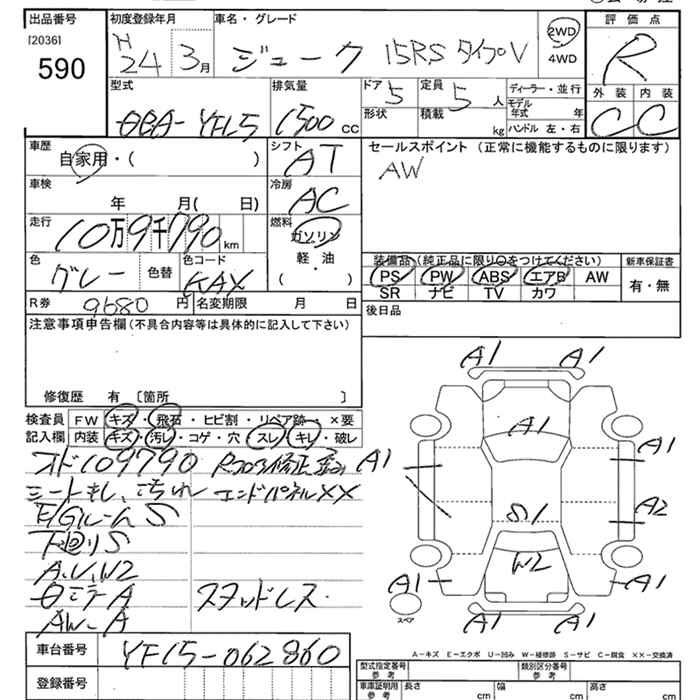 出品番号 [2036] 590
初度登録年月 H24 3月
車名・グレード ジューク 15RS タイプV
2WD
4WD
評価点 R
外装 C 内装 C
型式 DBA-YF15
排気量 1500 CC
ドア 5 形状
定員 5人
積載 kg
ディーラー・並行
モデル年式 年
ハンドル 左・右
車歴 自家用・( )
シフト AT
セールスポイント (正常に機能するものに限ります)
AW
車検 年 月( 日)
冷房 AC
走行 10万9千790km
燃料 ガソリン
軽・油
( )
色 グレー 色替 色コード KAX
装備品 (純正品に限り○をつけてください)
PS PW ABS エアB AW
SR ナビ TV カワ
新車保証書
有・無
R券 9680円 名変期限 月 日
後日品
注意事項申告欄 (不具合内容等は具体的に記入して下さい)
修復歴 有 [箇所 ]
検査員記入欄
FW キズ・飛石・ヒビ割・リペア跡・×要
内装 キズ・汚レ・コゲ・穴 スレ・キレ・破レ
オド109790
シートキレ、汚れ エンドパネルXX
E/GルームS
下回りS
A.U.W2
スタッドレス
AW-A
A1 A1
A1
A1 A1
A2
S1
W2
A1 A1
A1 A1
スペア
A-キズ E-エクボ U-凹み W-補修跡 S-サビ C-腐食 XX-交換済
車台番号 YF15-062860
登録番号
型式指定番号 参考
類別区分番号 参考
車庫証明用 参考 長さ cm 幅 cm 高さ cm